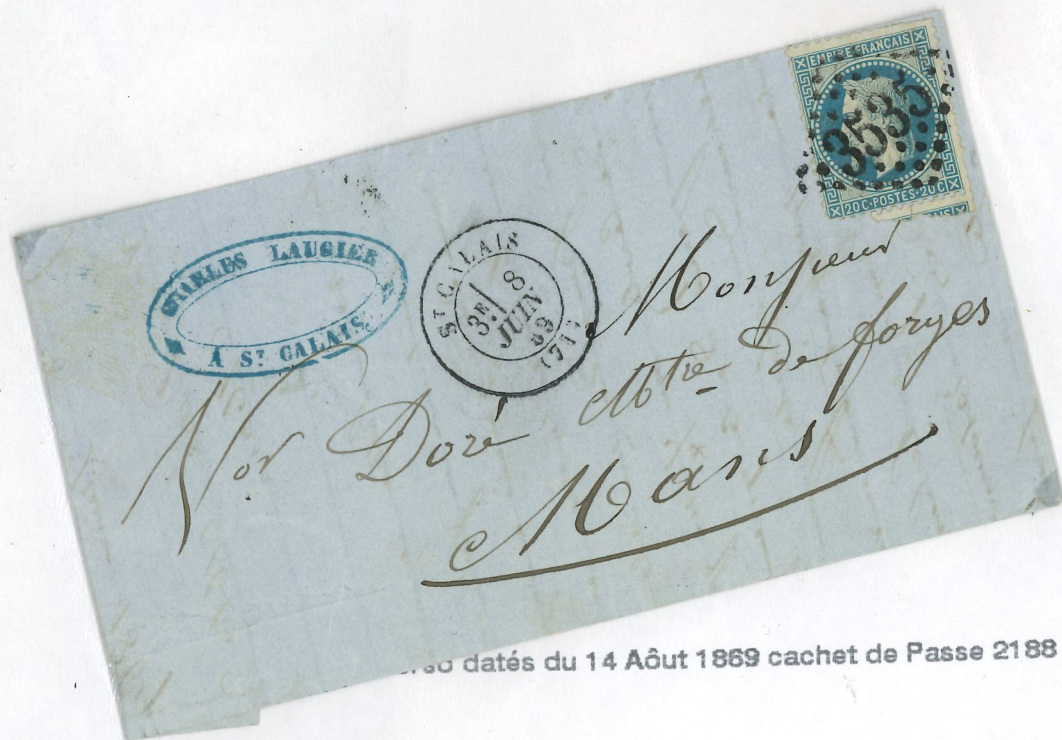 EMPIRE FRANCAIS
3535
20C·POSTES·20C
CHARLES LAUGIER
A ST CALAIS
ST CALAIS
3E 8
JUIN
69
(71)
Monsieur
Vor Doré Mtre de forges
Mans
datés du 14 Aôut 1869 cachet de Passe 2188